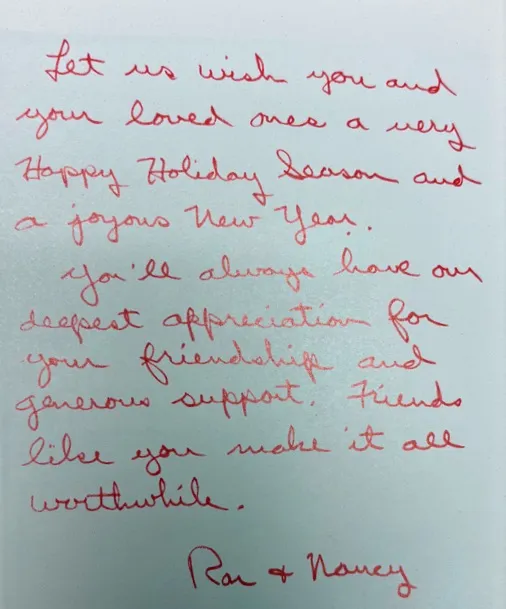 Let us wish you and
your loved ones a very
Happy Holiday Season and
a joyous New Year.
You'll always have our
deepest appreciation for
your friendship and
generous support. Friends
like you make it all
worthwhile.
Ron + Nancy